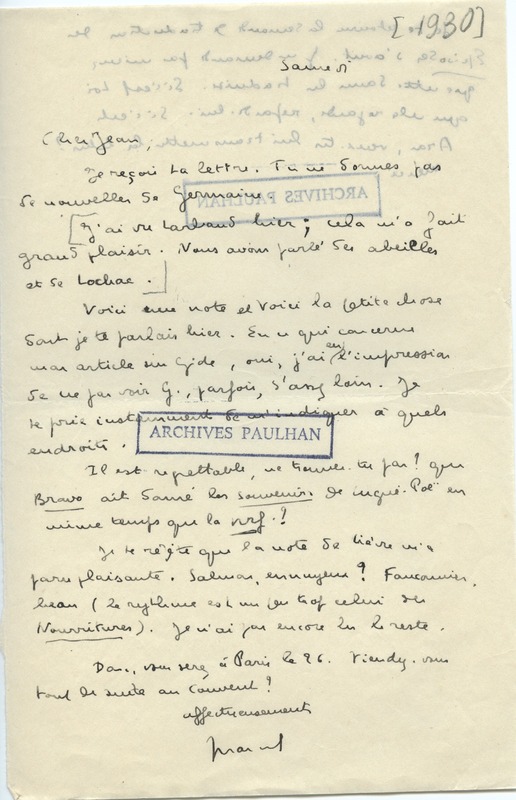 [1930]
Samedi
Cher Jean,
Je reçois ta lettre. Tu ne donnes pas
de nouvelles de Germaine.
ARCHIVES PAULHAN
[J'ai vu Larbaud hier ; cela m'a fait
grand plaisir. Nous avons parlé des abeilles
et de Lochac.]
Voici une note et voici la petite chose
dont je te parlais hier. En ce qui concerne
mon article sur Gide, oui, j'ai eu l'impression
de ne pas voir G., parfois, d'assez loin. Je
te prie instamment de m'indiquer à quels
endroits.
ARCHIVES PAULHAN
Il est regrettable, ne trouves-tu pas ? que
Bravo ait donné les souvenirs de
en
même temps que la nrf. !
Je te répète que la note de Lièvre m'a
paru plaisante. Salmon, ennuyeux ? Fauconnier,
beau (le rythme est un peu trop celui des
Nourritures). Je n'ai pas encore lu le reste.
Donc, vous serez à Paris le 26. Viendrez-vous
tout de suite au couvent ?
affectueusement
Marcel